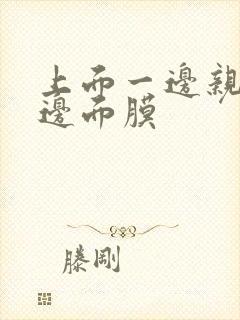 上而一邊親
邊而膜
滕剛